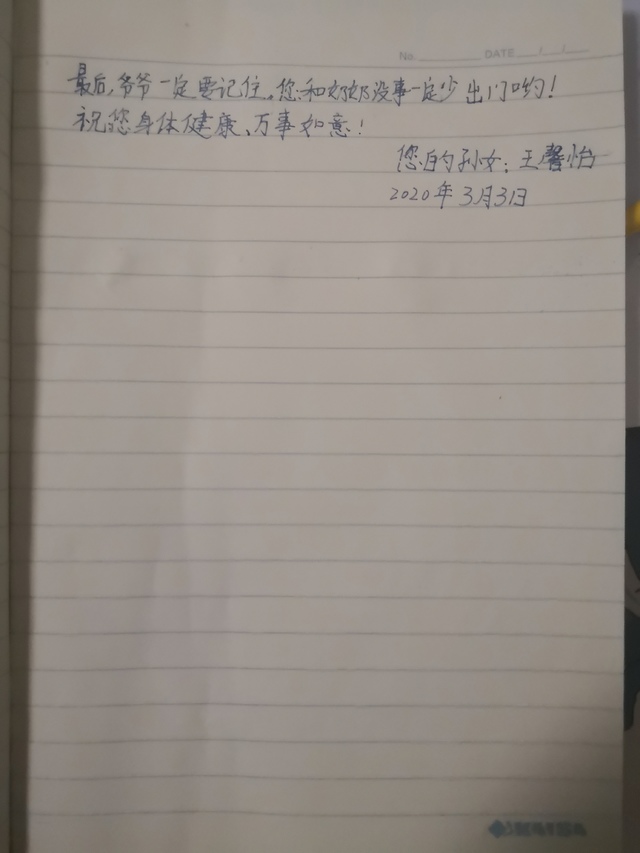 No. DATE / /
最后,爷爷一定要记住,您和奶奶没事一定少出门哟!
祝您身体健康、万事如意!
您的孙女:王馨怡
2020年3月3日